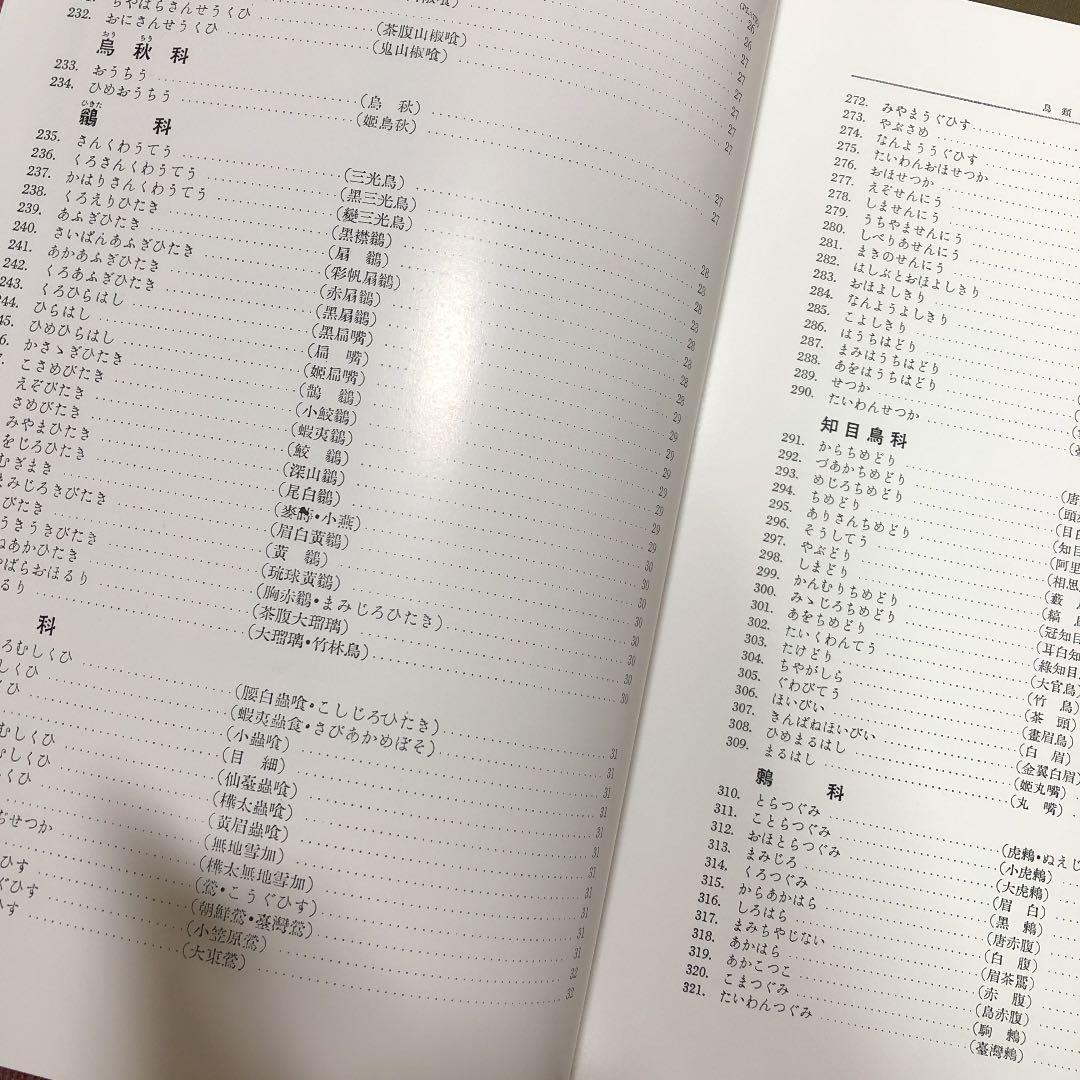 ちやはらさんせうくひ (茶腹山椒喰) 26
232. おにさんせうくひ (鬼山椒喰) 27
烏秋科
おう ちう
233. おうちう (烏 秋) 27
234. ひめおうちう (姫烏秋) 27
鶲 科
ひきた
235. さんくわうてう (三光鳥) 27
236. くろさんくわうてう (黑三光鳥) 27
237. かはりさんくわうてう (變三光鳥)
238. くろえりひたき (黑襟鶲) 28
239. あふぎひたき (扇 鶲) 28
240. さいぱんあふぎひたき (彩帆扇鶲) 28
241. あかあふぎひたき (赤扇鶲) 28
242. くろあふぎひたき (黑扇鶲) 28
243. くろひらはし (黑扁嘴) 28
244. ひらはし (扁 嘴) 28
245. ひめひらはし (姬扁嘴) 28
かさゝぎひたき (鵲 鶲) 29
こさめびたき (小鮫鶲) 29
えぞびたき (蝦夷鶲) 29
さめびたき (鮫 鶲) 29
みやまひたき (深山鶲) 29
をじろひたき (尾白鶲) 29
むぎまき (麥蒔•小燕) 29
まみじろきびたき (眉白黃鶲) 29
びたき (黃 鶲) 30
うきうきびたき (琉球黃鶲) 30
ねあかひたき (胸赤鶲•まみじろひたき) 30
やばらおほるり (茶腹大瑠璃) 30
るり (大瑠璃•竹林鳥) 30
科
ろむしくひ (腰白蟲喰•こしじろひたき) 31
しくひ (蝦夷蟲食•さびあかめぼそ) 31
くひ (小蟲喰) 31
(目 細) 31
むしくひ (仙臺蟲喰) 31
むしくひ (樺太蟲喰) 31
くひ (黃眉蟲喰) 31
(無地雪加) 31
ぢせつか (樺太無地雪加) 31
(鶯•こうぐひす) 31
ひす (朝鮮鶯•臺灣鶯) 31
ぐひす (小笠原鶯) 32
ひす (大東鶯) 32
鳥 類
272. みやまうぐひす
273. やぶさめ
274. なんよううぐひす
275. たいわんおほせつか
276. おほせつか
277. えぞせんにう
278. しませんにう
279. うちやませんにう
280. しべりあせんにう
281. まきのせんにう
282. はしぶとおほよしきり
283. おほよしきり
284. なんようよしきり
285. こよしきり
286. はうちはどり
287. まみはうちはどり
288. あをはうちはどり
289. せつか
290. たいわんせつか
知目鳥科
291. からちめどり (唐
292. づあかちめどり (頭
293. めじろちめどり (目白
294. ちめどり (知目
295. ありさんちめどり (阿里
296. そうしてう (相思
297. やぶどり (藪
298. しまどり (縞
299. かんむりちめどり (冠知目
300. みゝじろちめどり (耳白知
301. あをちめどり (綠知目
302. たいくわんてう (大官鳥)
303. たけどり (竹 鳥)
304. ちやがしら (茶 頭)
305. ぐわびてう (畫眉鳥)
306. ほいびい (白 眉)
307. きんばねほいびい (金翼白眉)
308. ひめまるはし (姬丸嘴)
309. まるはし (丸 嘴)
鶫 科
310. とらつぐみ (虎鶫•ぬえじ
311. ことらつぐみ (小虎鶫)
312. おほとらつぐみ (大虎鶫)
313. まみじろ (眉 白)
314. くろつぐみ (黑 鶫)
315. からあかはら (唐赤腹)
316. しろはら (白 腹)
317. まみちやじない (眉茶鶥)
318. あかはら (赤 腹)
319. あかこつこ (島赤腹)
320. こまつぐみ (駒 鶫)
321. たいわんつぐみ (臺灣鶫)